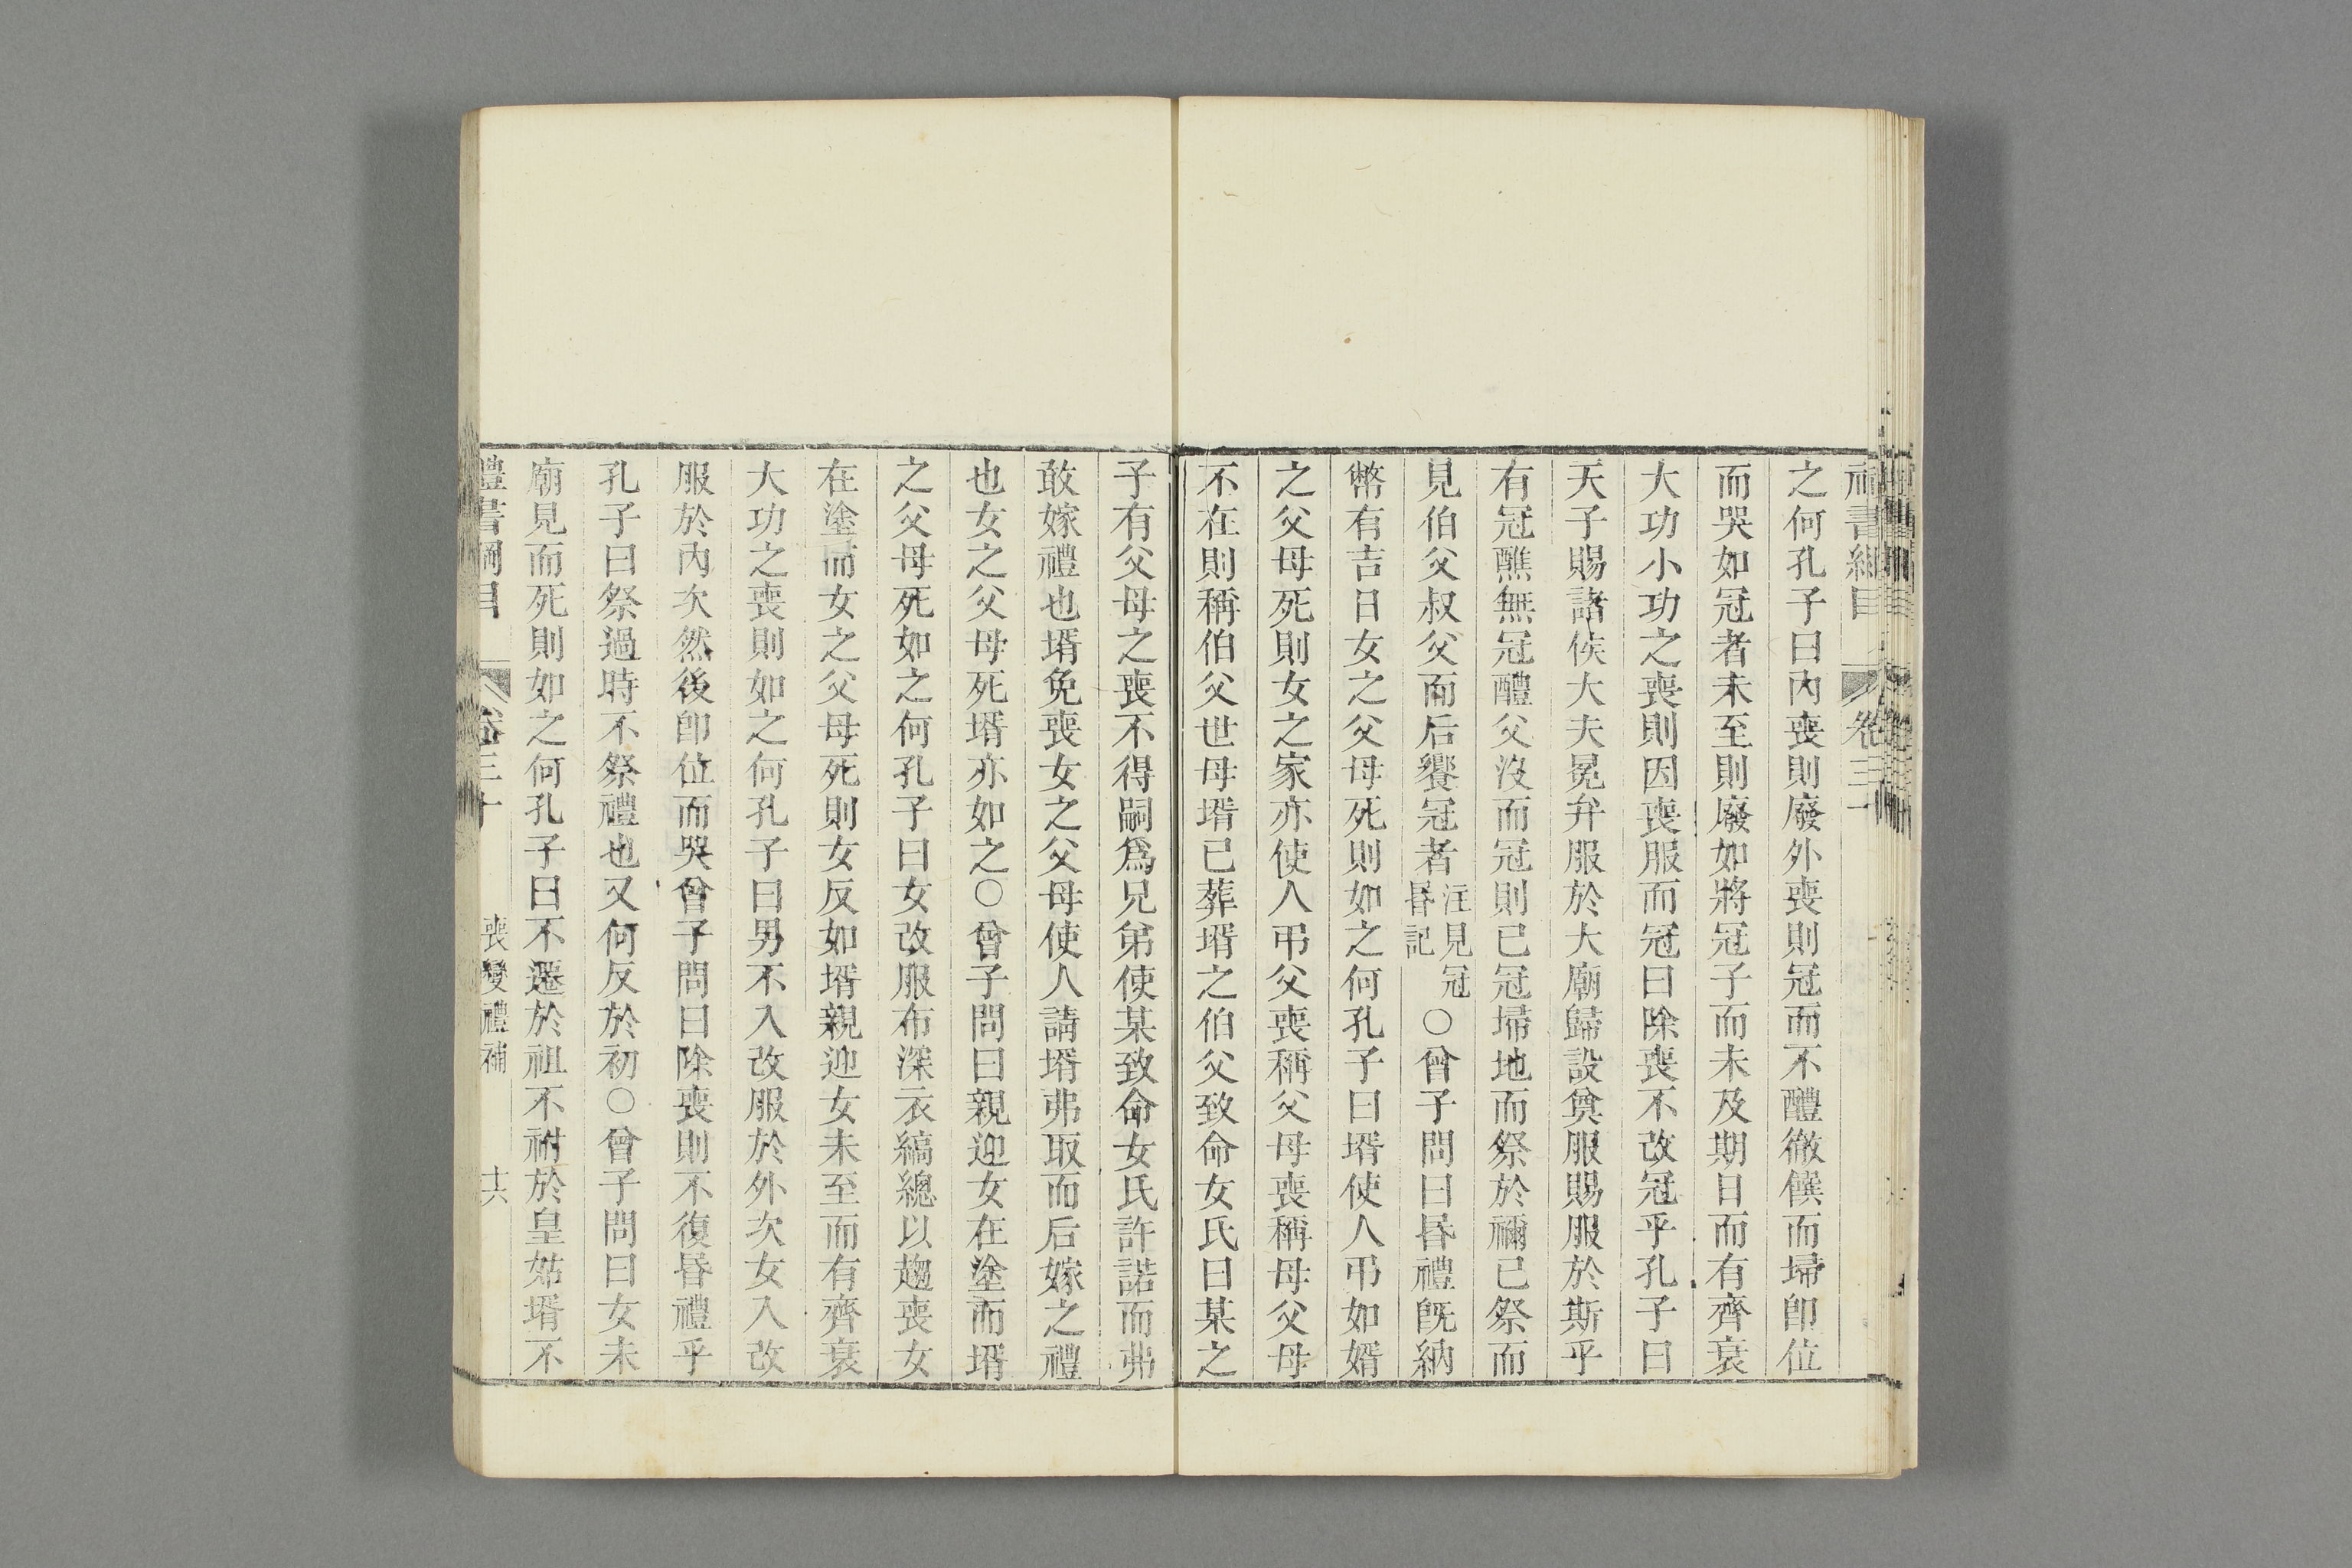 禮書綱目
卷三十
之何孔子曰內喪則廢外喪則冠而不醴徹饌而埽卽位
而哭如冠者未至則廢如將冠子而未及期日而有齊衰
大功小功之喪則因喪服而冠曰除喪不改冠乎孔子曰
天子賜諸侯大夫冕弁服於大廟歸設奠服賜服於斯乎
有冠醮無冠醴父沒而冠則已冠埽地而祭於禰已祭而
見伯父叔父而后饗冠者注見冠昬記○曾子問曰昬禮旣納
幣有吉日女之父母死則如之何孔子曰壻使人弔如婿
之父母死則女之家亦使人弔父喪稱父母喪稱母父母
不在則稱伯父世母壻已葬壻之伯父致命女氏曰某之
子有父母之喪不得嗣爲兄弟使某致命女氏許諾而弗
敢嫁禮也壻免喪女之父母使人請壻弗取而后嫁之禮
也女之父母死壻亦如之○曾子問曰親迎女在塗而壻
之父母死如之何孔子曰女改服布深衣縞總以趨喪女
在塗而女之父母死則女反如壻親迎女未至而有齊衰
大功之喪則如之何孔子曰男不入改服於外次女入改
服於內次然後卽位而哭曾子問曰除喪則不復昬禮乎
孔子曰祭過時不祭禮也又何反於初○曾子問曰女未
廟見而死則如之何孔子曰不遷於祖不祔於皇姑壻不
禮書綱目
卷三十
喪變禮補
十六